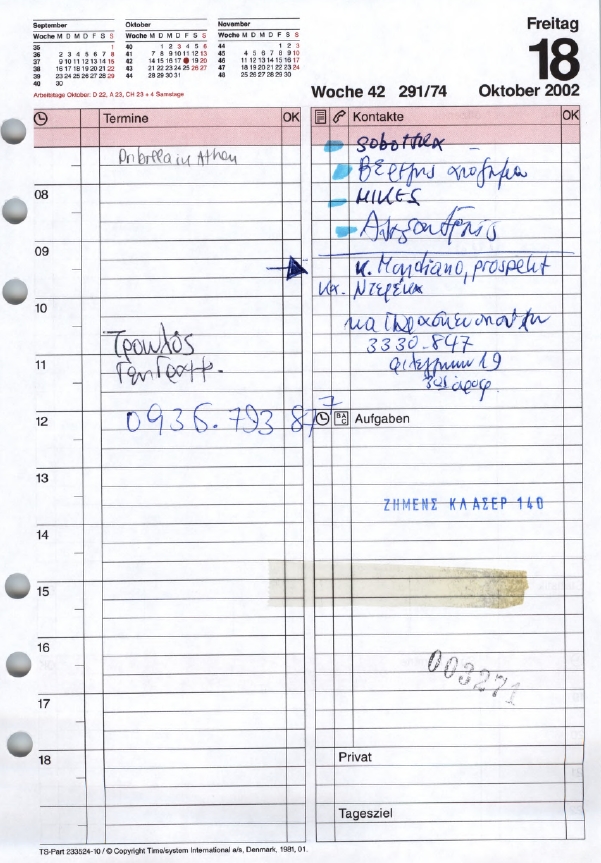 September
Woche M D M D F S S
35 1
36 2 3 4 5 6 7 8
37 9 10 11 12 13 14 15
38 16 17 18 19 20 21 22
39 23 24 25 26 27 28 29
40 30
Oktober
Woche M D M D F S S
40 1 2 3 4 5 6
41 7 8 9 10 11 12 13
42 14 15 16 17 19 20
43 21 22 23 24 25 26 27
44 28 29 30 31
November
Woche M D M D F S S
44 1 2 3
45 4 5 6 7 8 9 10
46 11 12 13 14 15 16 17
47 18 19 20 21 22 23 24
48 25 26 27 28 29 30
Arbeitstage Oktober: D 22, A 23, CH 23 + 4 Samstage
Freitag
18
Woche 42 291/74 Oktober 2002
Termine OK
in Athen
08
09
10
11
12
13
14
15
16
17
18
Τρουλός
0936.793 877
Kontakte OK
Sobottka
Βέργης
MIKES
κ. Mondiano, prospekt
κα.
3330-847
19
Aufgaben
ΖΗΜΕΝΣ ΚΛΑΣΕΡ 140
003271
Privat
Tagesziel
TS-Part 233524-10 / © Copyright Time/system International a/s, Denmark, 1981, 01.